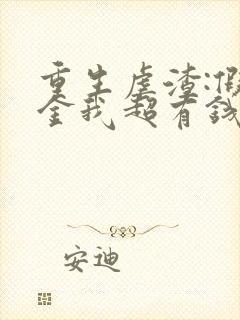 重生虐渣:假
全我超有钱
安迪